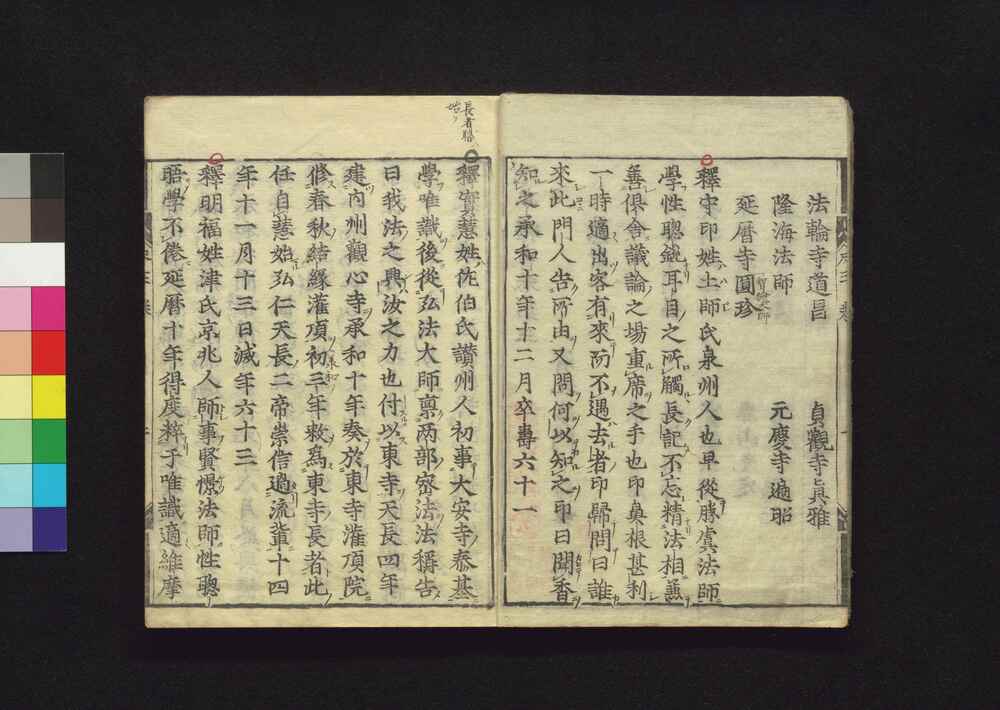 法輪寺道昌 貞觀寺眞雅
隆海法師 元慶寺遍昭
延暦寺圓珍
智證大師
釋守印姓土師氏泉州人也早從勝虞法師
學性聰鋭耳目之所觸長記不忘精法相兼
善倶舍議論之場重席之手也印鼻根甚利
一時適出客有來而不遇去者印歸問曰誰
來此門人告所由又問何以知之印曰聞香
知之承和十年十二月卒壽六十一
長者賂
始ソ
釋實慧姓佐伯氏讚州人初事大安寺泰基
學唯識後從弘法大師禀兩部密法法稱告
曰我法之興汝之力也付以東寺天長四年
建内州觀心寺承和十年奏於東寺灌頂院
修春秋結縁灌頂初三年敕爲東寺長者此
任自慧始弘仁天長二帝崇信過流輩十四
年十一月十三日滅年六十三
釋明福姓津氏京兆人師事賢憬法師性聰
晤學不倦延暦十年得度粹于唯識適維摩